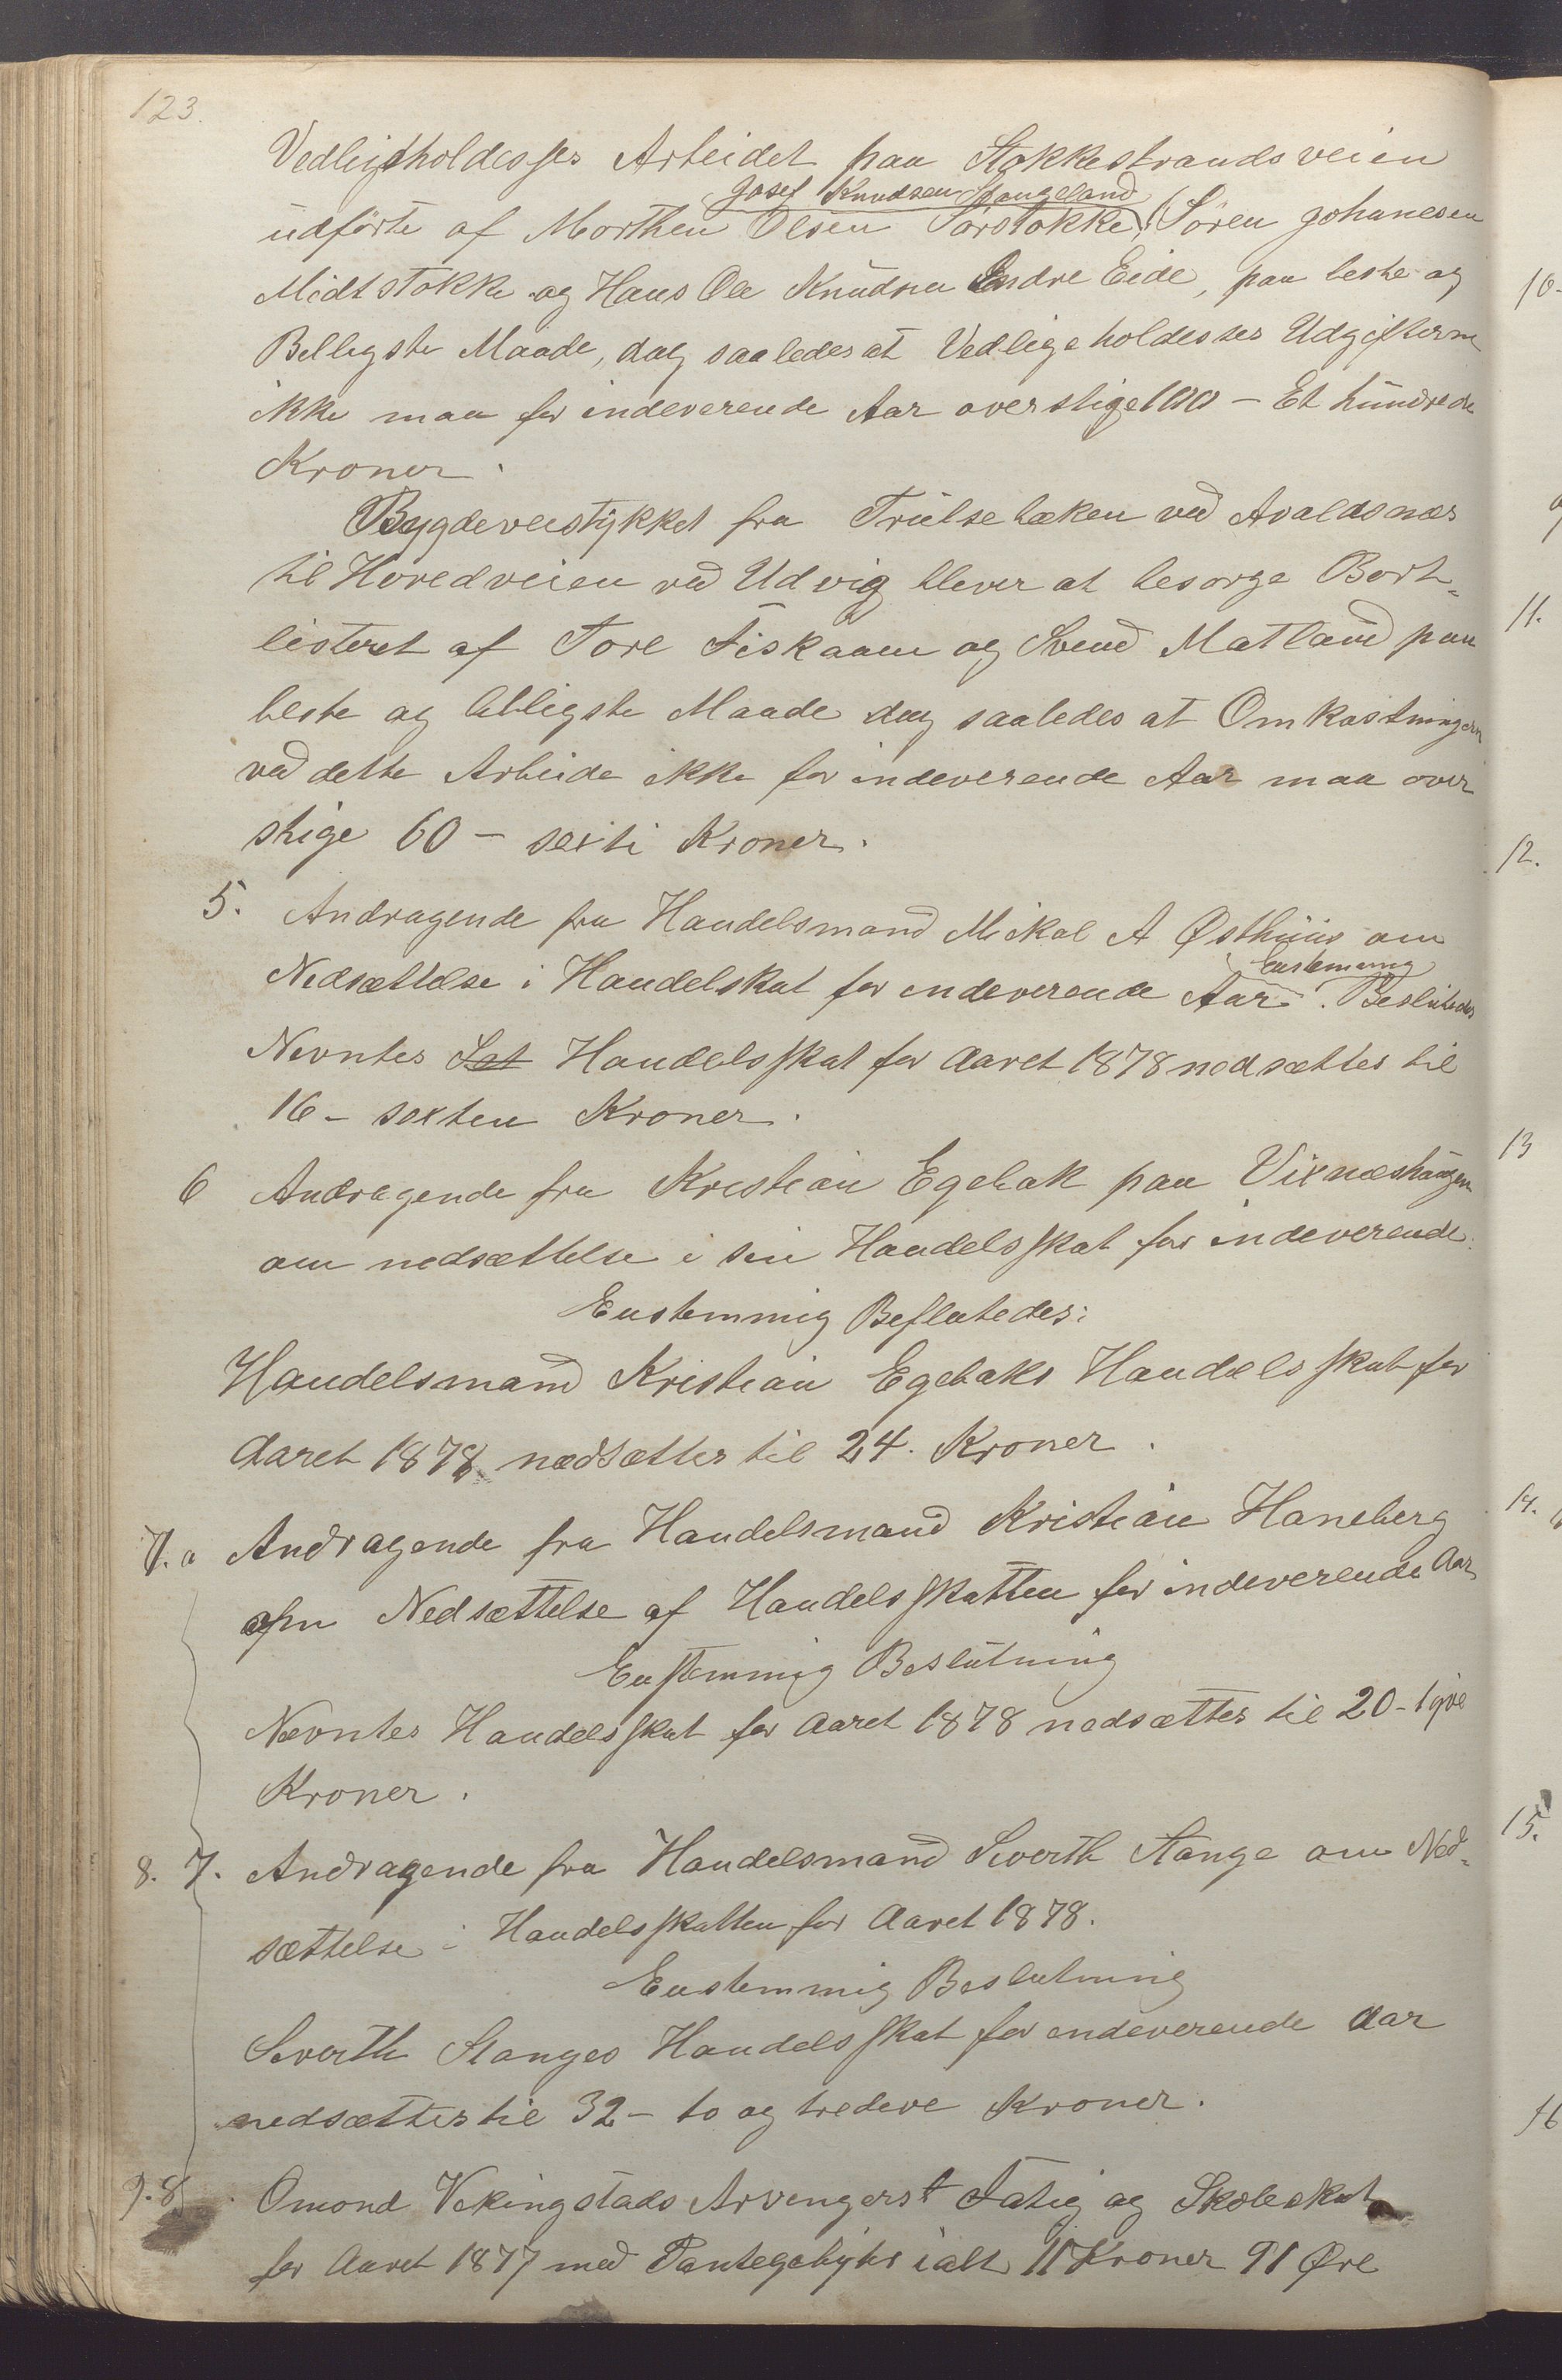 123.
Vedligeholdesses Arbeidet paa Stokkestrandsveien
Josef Knudsen Stangeland
udförte af Morthen Olsen Sörstokke, Sören Johanesen
Midtstokke og Hans Ole Knudsen Endre Eide, paa beste og
Belligste Maade, dog saaledes at Vedligeholdesses Udgifterne
ikke maa for indeverende Aar overstige 100 – Et hundrede
Kroner.
Bygdeveistykket fra Trulsebæken ved Avaldsnæs
til Hovedveien ved Udvig blever at besorge Bort-
listeret af Tore Fiskaaen og Svend Matland paa
beste og billigste Maade dog saaledes at Omkostningern
ved dette Arbeide ikke for indeverende Aar maa over
stige 60 – sexti Kroner.
5. Andragende fra Handelsmand Mikal A Østhuus om
Enstemmig
Nedsættelse i Handelskat for indeverende Aar. Beslutedes
Nevntes Sat Handelsskat for Aaret 1878 nedsættes til
16 – sexten Kroner.
6 Andragende fra Kristian Egebak paa Vixnæshaugen
om nedsættelse i sin Handelsskat for indeverende.
Enstemmig Beslutedes:
Handelsmand Kristian Egebaks Handelsskat for
Aaret 1878 nedsættes til 24. Kroner.
7. a Andragende fra Handelsmand Kristian Haneberg
om Nedsættelse af Handelsskatten for indeverende Aar
Enstemmig Beslutning
Nevntes Handelsskat for Aaret 1878 nedsættes til 20 – tyve
Kroner.
8. 7. Andragende fra Handelsmand Siverth Stange om Ned-
sættelse i Handelsskatten for Aaret 1878.
Enstemmig Beslutning
Siverth Stanges Handelsskat for indeverende Aar
nedsættes til 32 – to og tredeve Kroner.
9. 8 Omond Vekingstads Arvengers Fatig og Skoleskat
for Aaret 1877 med Pantegebyhr ialt 11 Kroner 91 Øre
10.
11.
12.
13
14.
15.
16